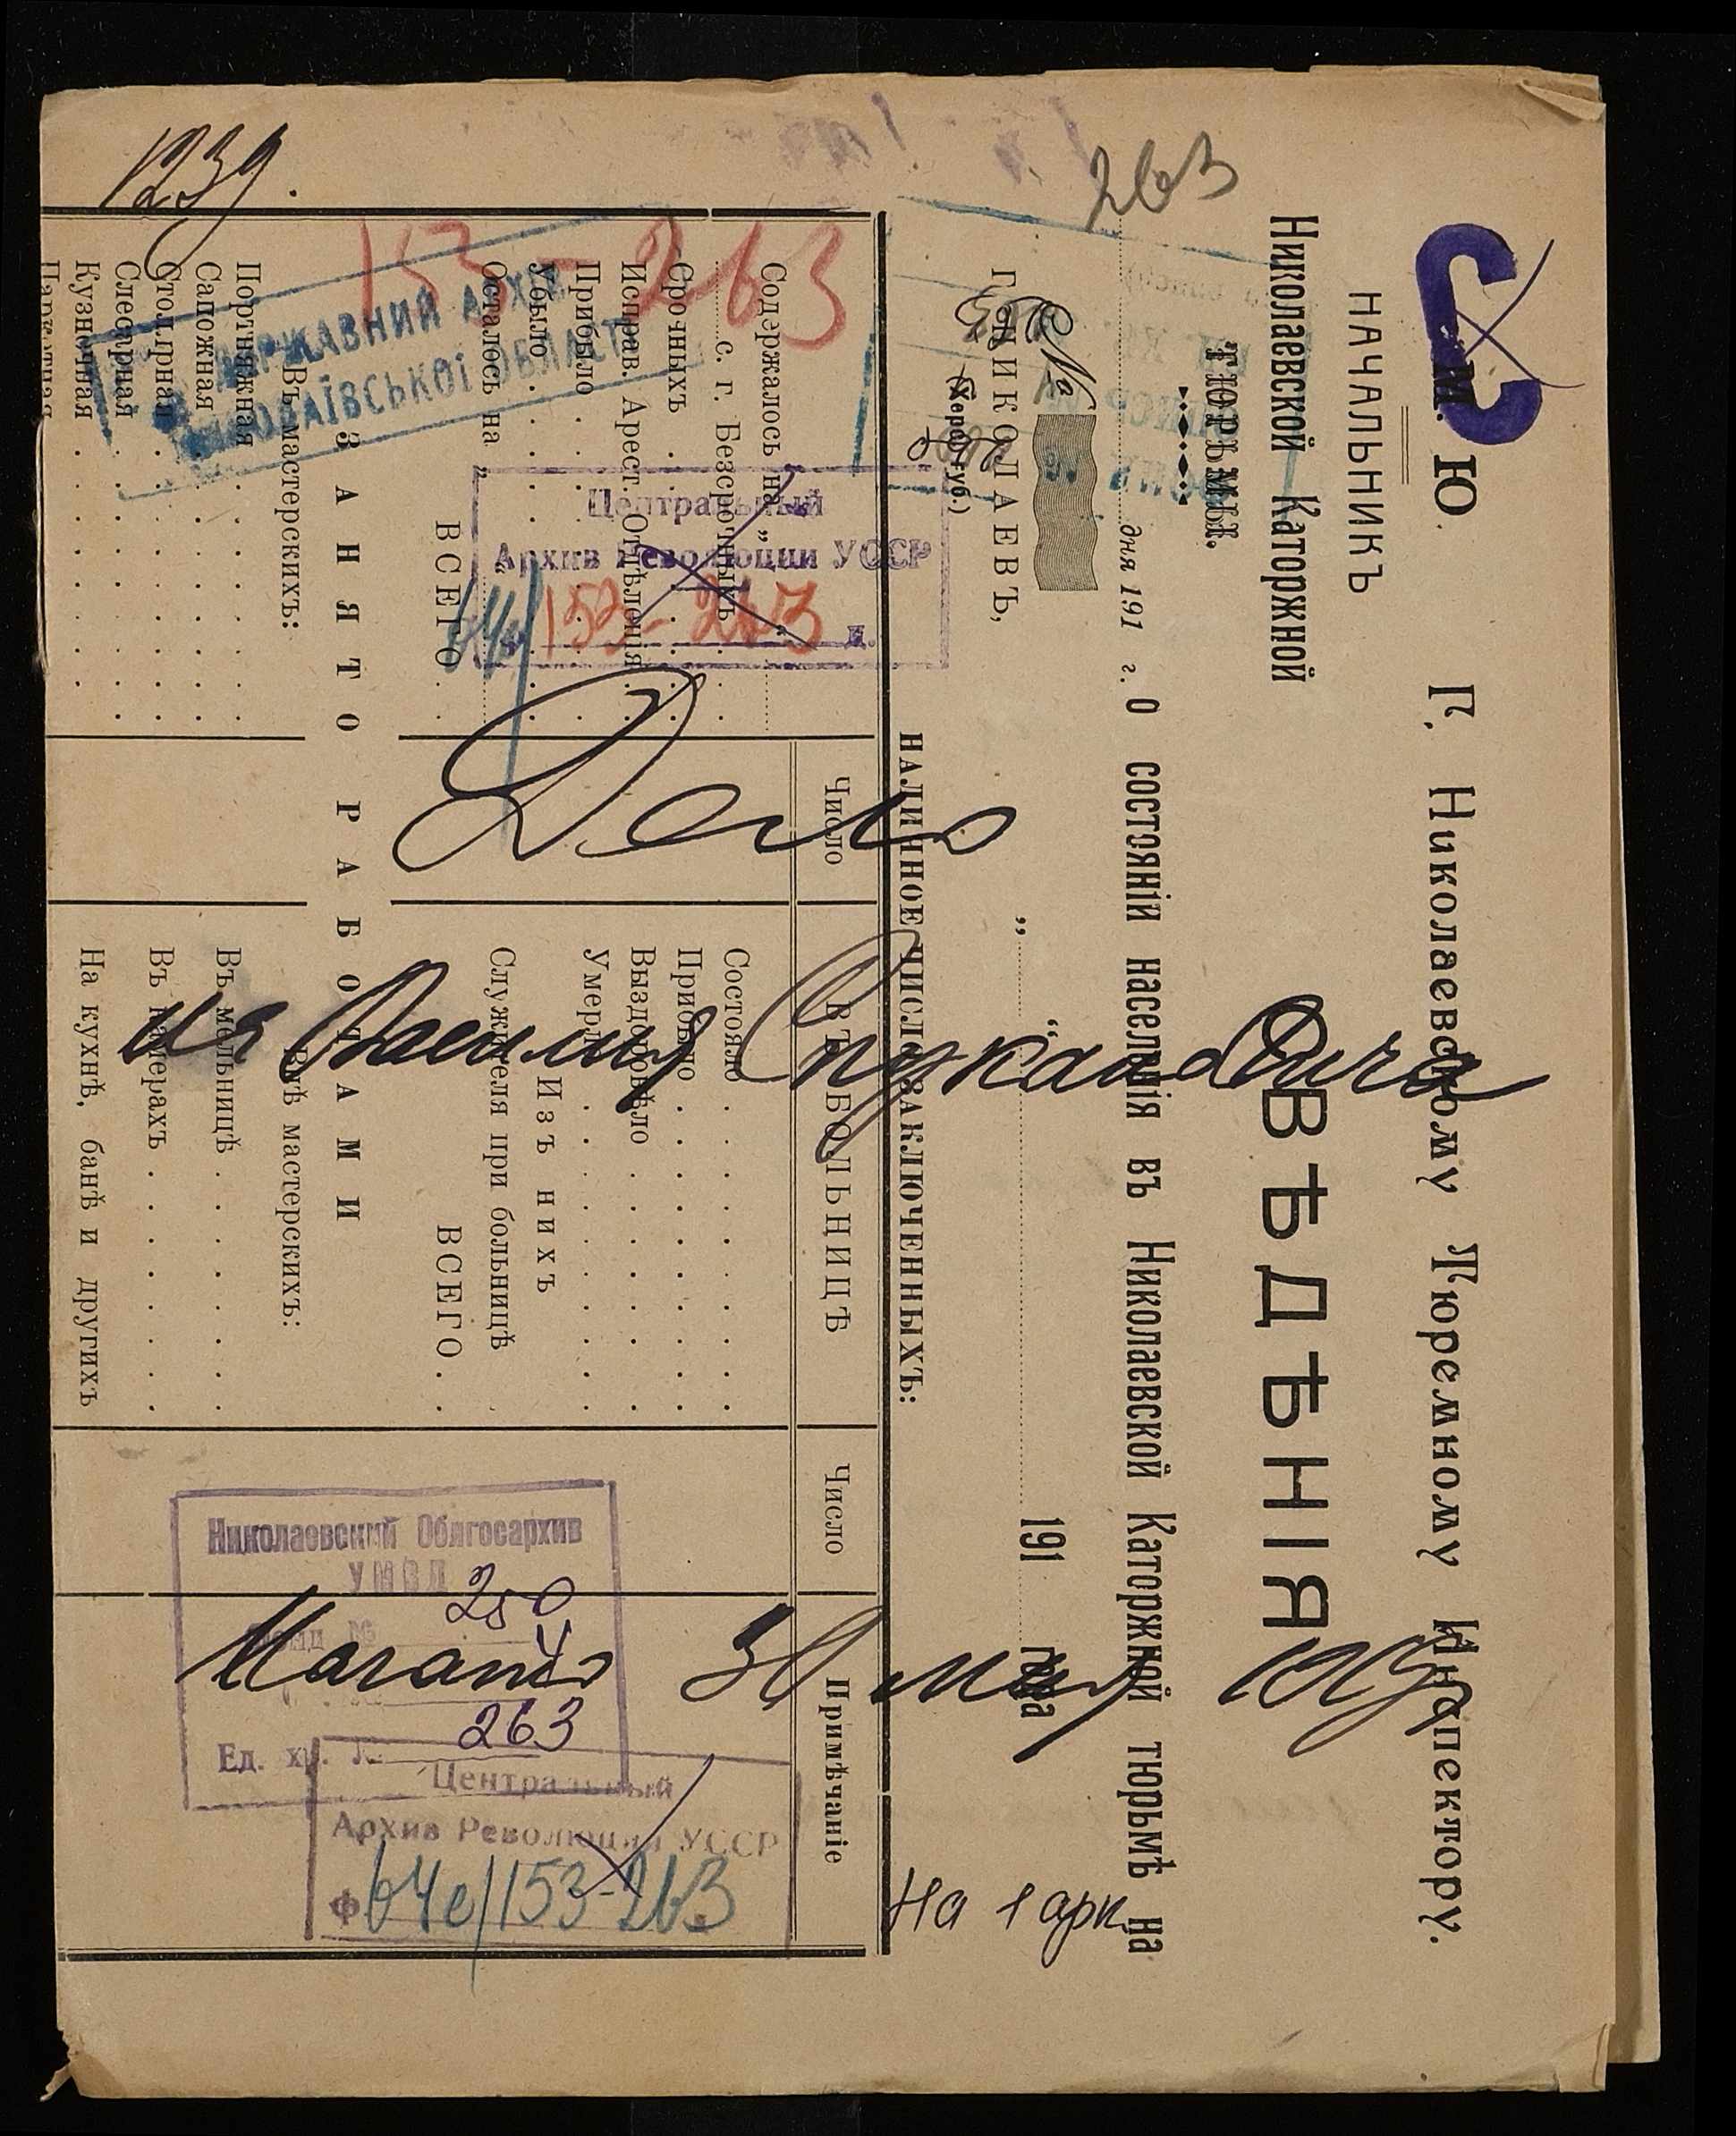 М. Ю.
НАЧАЛЬНИКЪ
Николаевской Каторжной
ТЮРЬМЫ.
дня 191 г.
№
Г. НИКОЛАЕВЪ,
(Херс. губ.)
Г. Николаевскому Тюремному Инспектору.
СВѢДѢНІЯ
О состояніи населенія въ Николаевской Каторжной тюрьмѣ на
„ “ 191 года
НАЛИЧНОЕ ЧИСЛО ЗАКЛЮЧЕННЫХЪ:
Число
ВЪ БОЛЬНИЦѢ
Число
Примѣчаніе
Содержалось на „ “
с. г. Безсрочныхъ
Срочныхъ
Исправ. Арест. Отдѣленія
Прибыло
Убыло
Осталось на „ “
ВСЕГО
Состояло
Прибыло
Выздоровѣло
Умерло
Изъ нихъ
Служителя при больницѣ
ВСЕГО
ЗАНЯТО РАБОТАМИ
Въ мастерскихъ:
Портняжная
Сапожная
Столярная
Слесарная
Кузнечная
Внѣ мастерскихъ:
Въ мельницѣ
Въ камерахъ
На кухнѣ, банѣ и другихъ
263
1239.
153-263
ДЕРЖАВНИЙ АРХІВ
МИКОЛАЇВСЬКОЇ ОБЛАСТІ
Центральный
Архив Революции УССР
153-263
Дело
Начато 30 мая
на 1 арк.
Николаевский Облгосархив
УМВД
Фонд № 250
4
Ед. хр. № 263
Центральный
Архив Революции УССР
Ф 64е/153-263